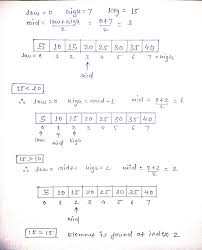 low = 0 high = 7 key = 15
mid = low+high / 2 = 0+7 / 2 = 3
5 10 15 20 25 30 35 40
low = 0 1 2 3 4 5 6 7 = high
mid
15 < 20
∴ low = 0 high = mid-1 mid = 0+2 / 2 = 1
5 10 15 20 25 30 35 40
0 1 2 3 4 5 6 7
mid
15 > 10
∴ low = mid+1 high = 2 mid = 2+2 / 2 = 2
5 10 15 20 25 30 35 40
0 1 2 3 4 5 6 7
mid
15 = 15 element is found at index 2